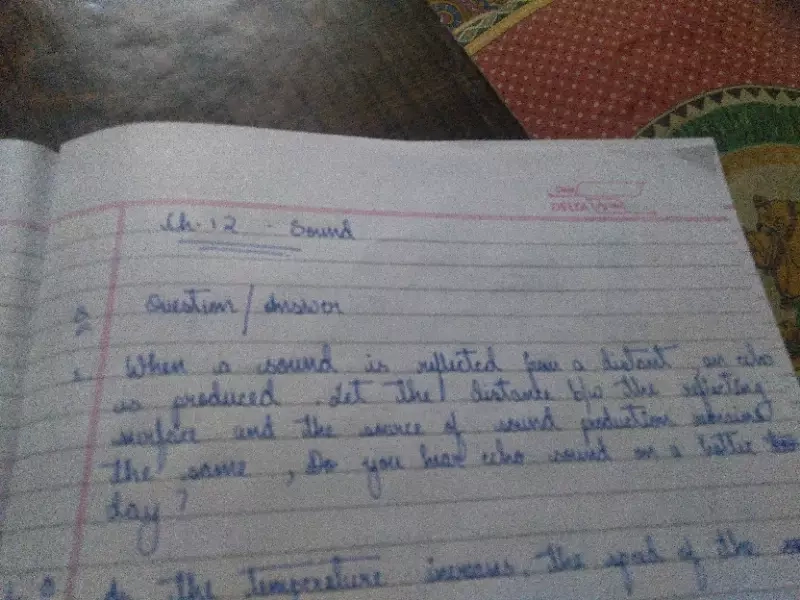 Date
Ch. 12 - Sound
Question / Answer
When a sound is reflected from a distant, an echo
is produced. Let the distance b/w the reflecting
surface and the source of sound production remains
the same, Do you hear echo sound on a hotter
day?
As the temperature increases, the speed of the